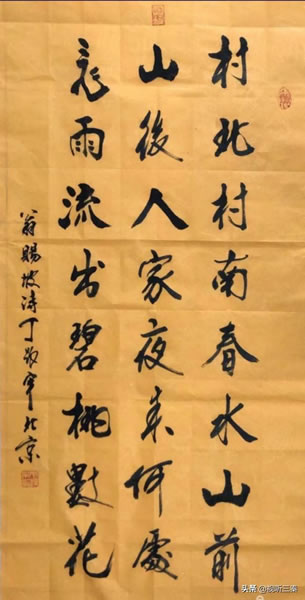 村北村南春水山前
山後人家夜来何處
飛雨流出碧桃數花
翁賜坡诗丁
北京
头条 @视听三秦